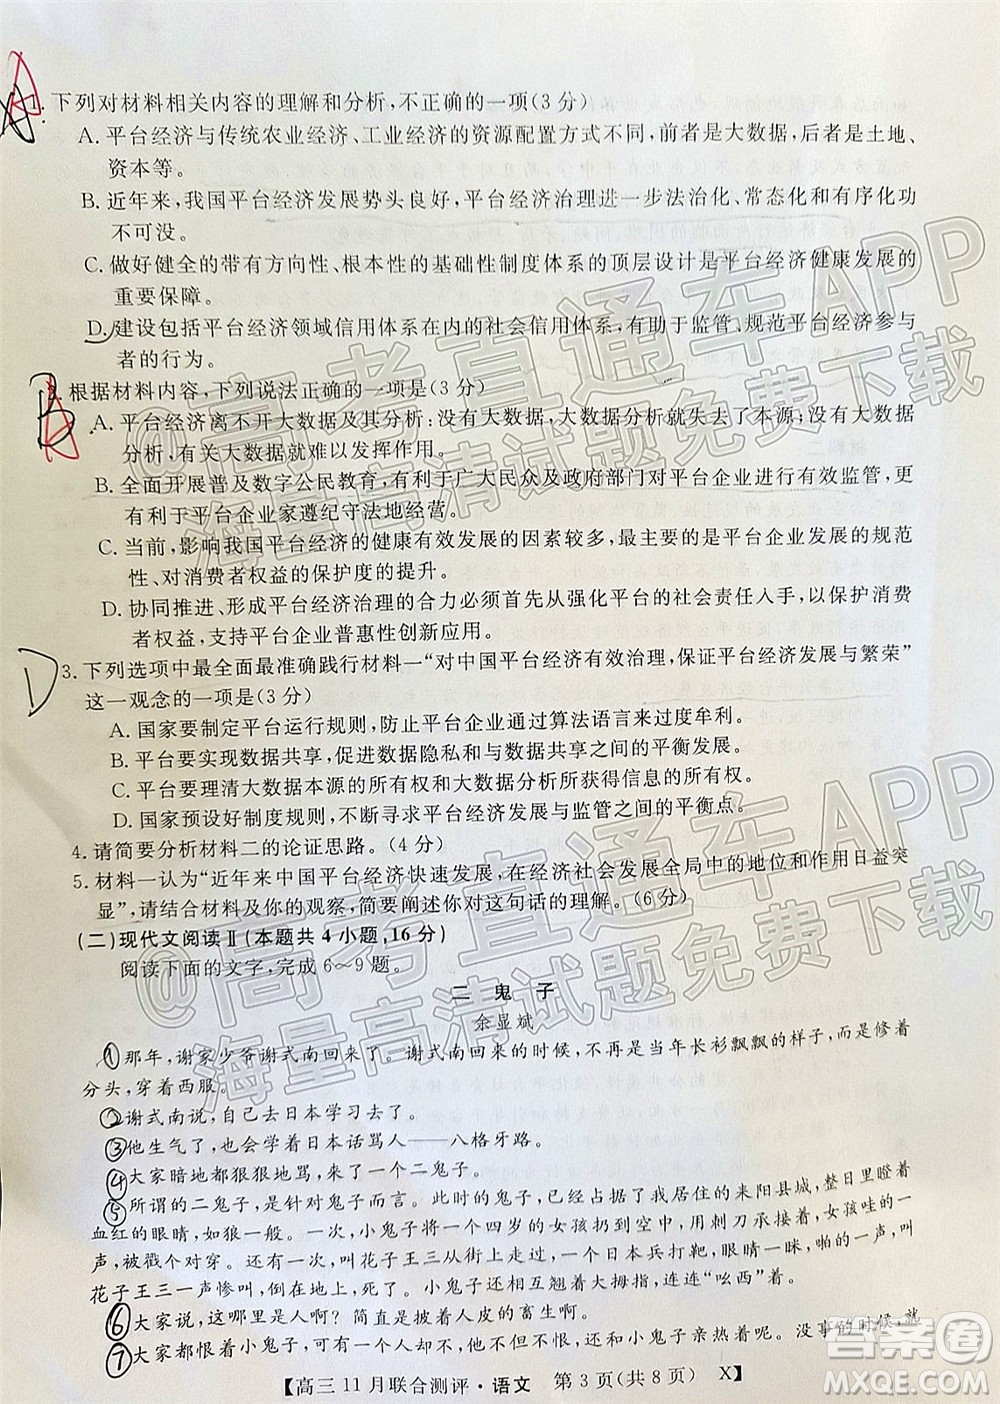 1. 下列对材料相关内容的理解和分析,不正确的一项(3分)
A. 平台经济与传统农业经济、工业经济的资源配置方式不同,前者是大数据,后者是土地、
资本等。
B. 近年来,我国平台经济发展势头良好,平台经济治理进一步法治化、常态化和有序化功
不可没。
C. 做好健全的带有方向性、根本性的基础性制度体系的顶层设计是平台经济健康发展的
重要保障。
D. 建设包括平台经济领域信用体系在内的社会信用体系,有助于监管、规范平台经济参与
者的行为。
根据材料内容,下列说法正确的一项是(3分)
A. 平台经济离不开大数据及其分析:没有大数据,大数据分析就失去了本源;没有大数据
分析,有关大数据就难以发挥作用。
B. 全面开展普及数字公民教育,有利于广大民众及政府部门对平台经济进行有效监管,更
有利于平台企业家遵纪守法地经营。
C. 当前,影响我国平台经济的健康有效发展的因素较多,最主要的是平台企业发展的规范
性、对消费者权益的保护度的提升。
D. 协同推进、形成平台经济治理的合力必须首先从强化平台的社会责任入手,以保护消费
者权益,支持平台企业普惠性创新应用。
3. 下列选项中最全面最准确践行材料一“对中国平台经济有效治理,保证平台经济发展与繁荣”
这一观念的一项是(3分)
A. 国家要制定平台运行规则,防止平台企业通过算法语言来过度牟利。
B. 平台要实现数据共享,促进数据隐私和与数据共享之间的平衡发展。
C. 平台要理清大数据本源的所有权和大数据分析所获得信息的所有权。
D. 国家预设好制度规则,使平台经济发展与监管之间的平衡点。
4. 请简要分析材料二的论证思路。(4分)
5. 材料一认为“近年来中国平台经济快速发展,在经济社会发展全局中的地位和作用日益突
显”,请结合材料及你的观察,简要阐述你对这句话的理解。(6分)
(二)现代文阅读Ⅱ(本题共4小题,16分)
阅读下面的文字,完成6~9题。
二 鬼 子
余显斌
①那年,谢家少爷谢式南回来了。谢式南回来的时候,不再是当年长衫飘飘的样子,而是留着
分头,穿着西服。
②谢式南说,自己去日本学习去了。
③他生气了,也会学着日本话骂人——八格牙路。
④大家暗地都狠狠地骂,来了一个二鬼子。
⑤所谓的二鬼子,是针对鬼子一词来说的。这时的鬼子,已经占领了的耒阳县城,整日里瞪着
血红的眼睛,如狼一般。一次,小鬼子将一个四岁的女孩扔到空中,用刺刀接住,女孩哇的一
声,被戳个对穿。还有一次,叫花子王三从路上走过,一个日本兵打靶,眼睛一眯,啪的一声,叫
花子王三一声惨叫,倒在地上,死了。小鬼子们相互翘着大拇指,连连“吆西”。
⑥大家说,这哪里是人啊?简直是披着人皮的畜生啊!
⑦大家都恨着小鬼子,可谢式南不恨,还和小鬼子交往着。没事的时候,就
【高三11月联合测评·语文 第3页(共8页) X】
@高考直通车APP
海量高清试题免费下载
@高考直通车APP
海量高清试题免费下载
答案圈
MXQE.COM